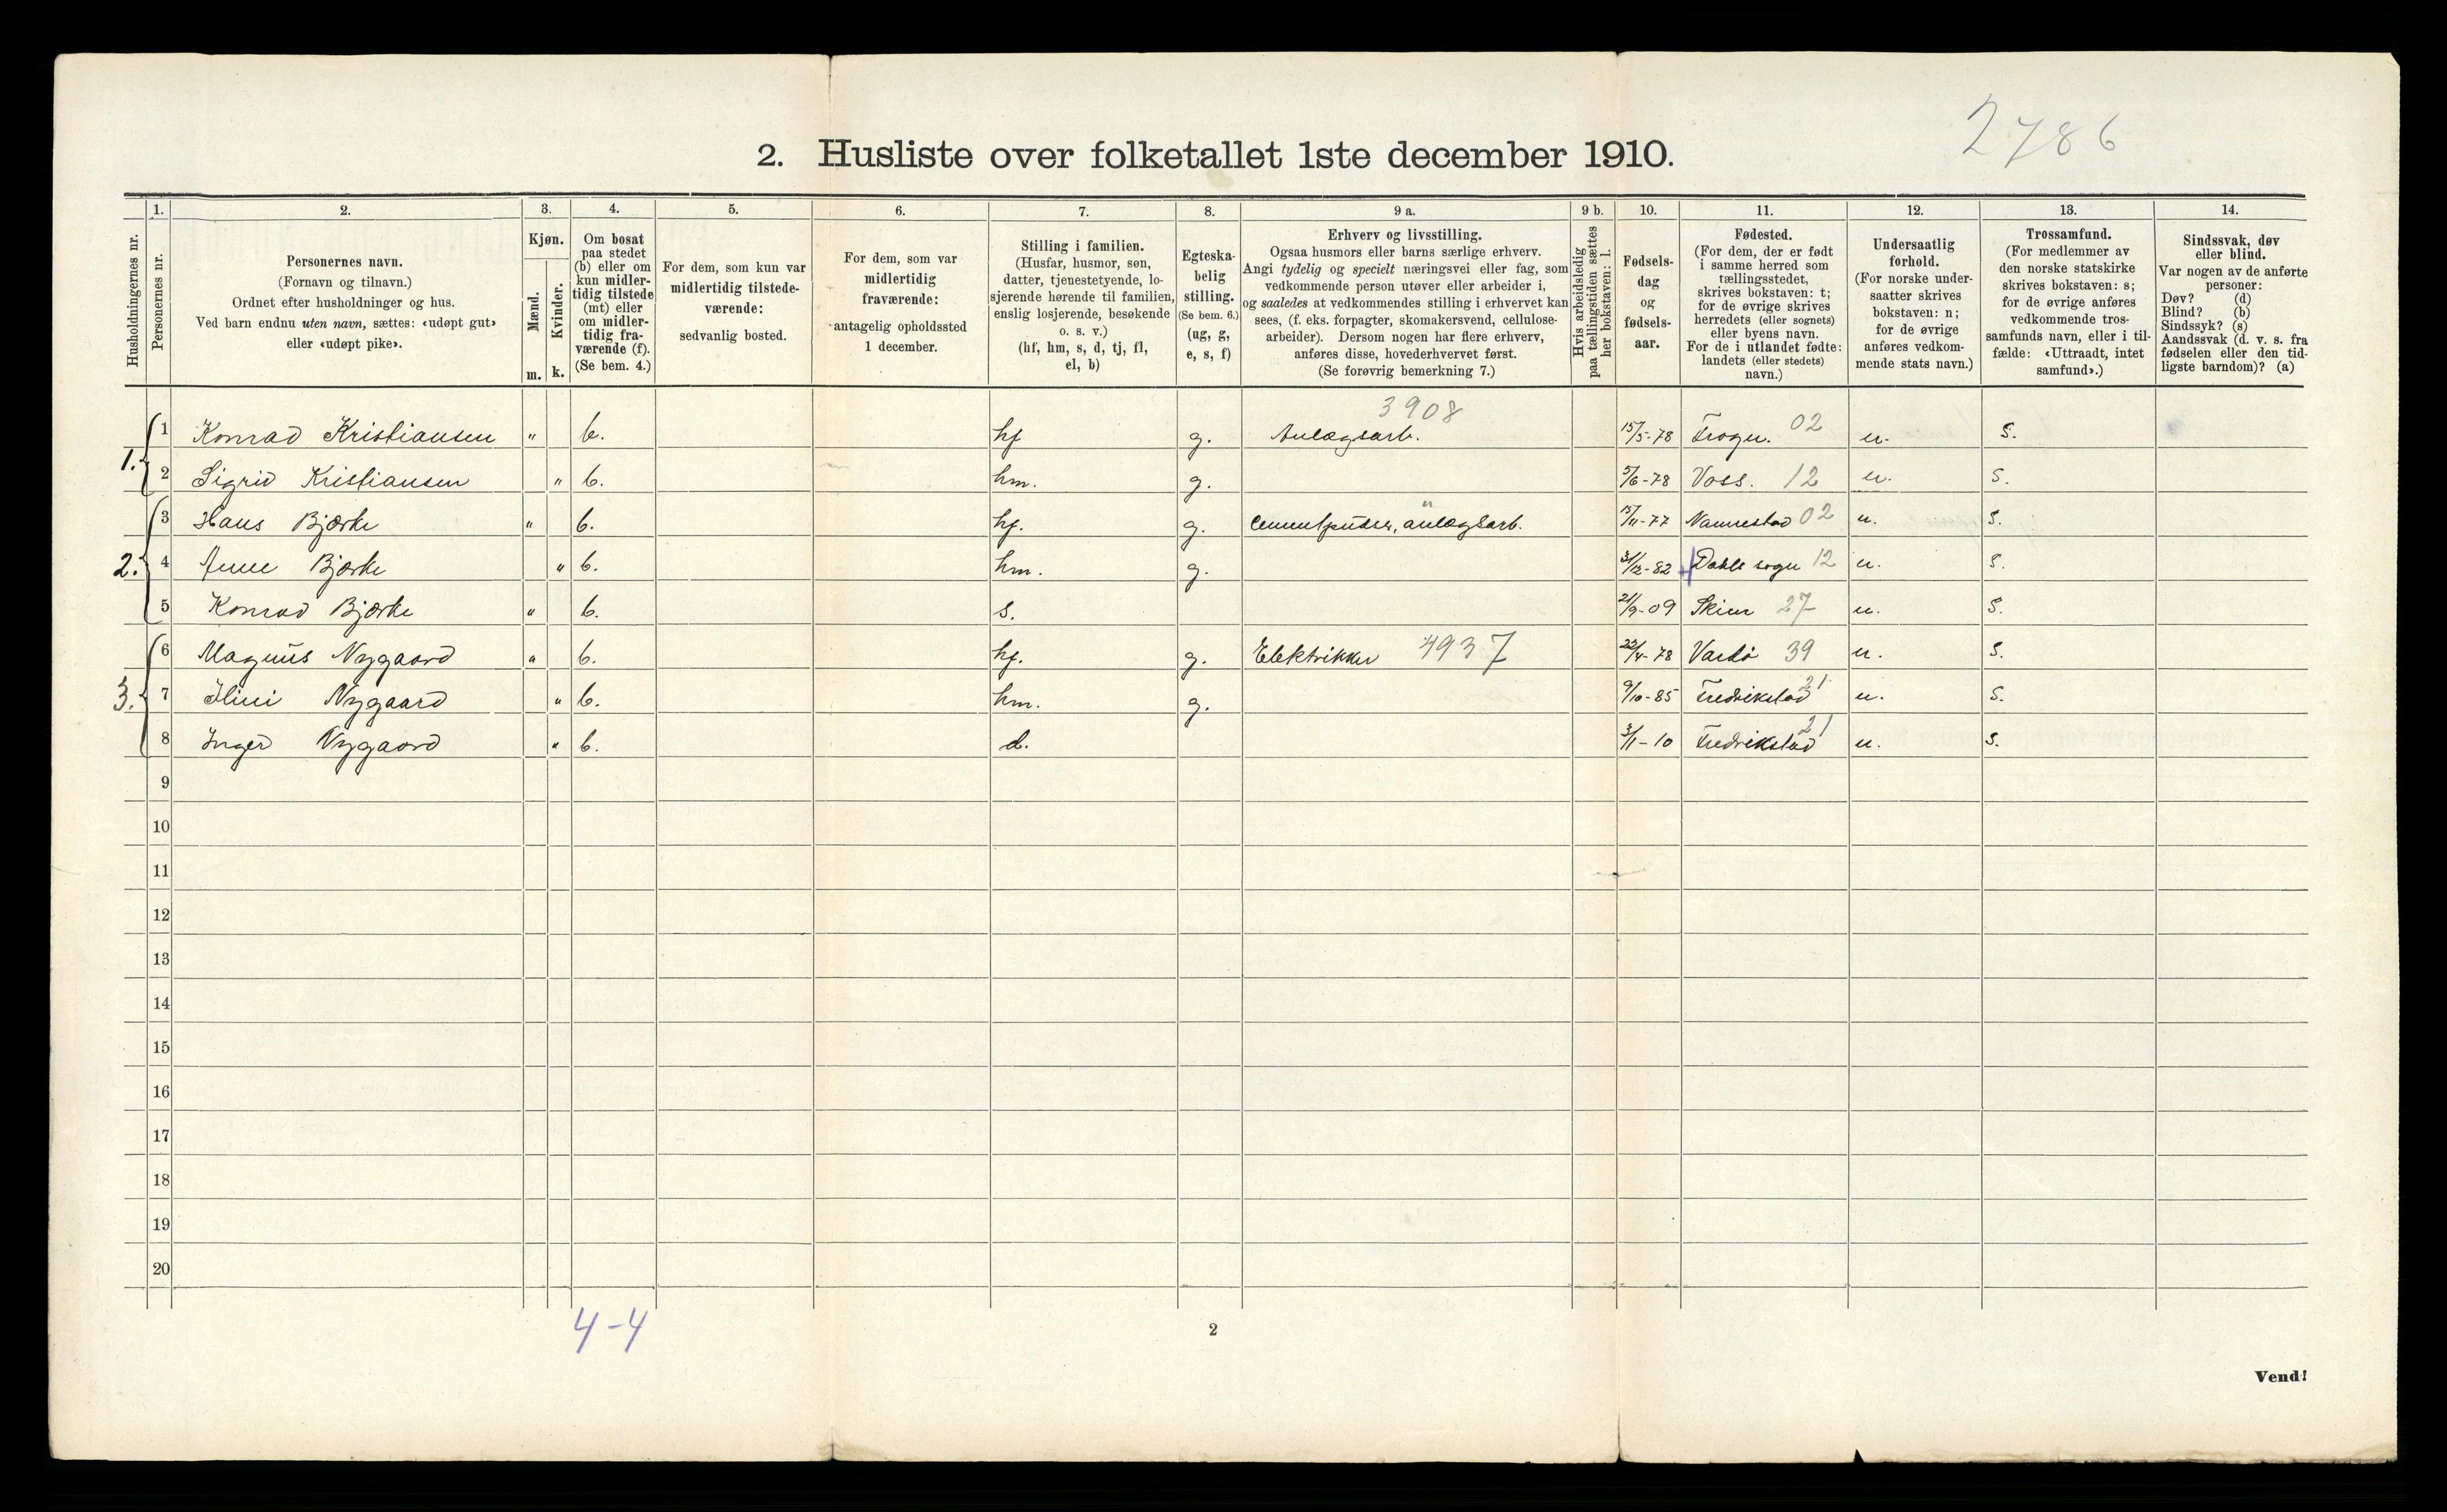 2786
2. Husliste over folketallet 1ste december 1910.
Husholdningernes nr.
1. Personernes nr.
2. Personernes navn.
(Fornavn og tilnavn.)
Ordnet efter husholdninger og hus.
Ved barn endnu uten navn, sættes: «udøpt gut»
eller «udøpt pike».
3. Kjøn.
Mænd. m.
Kvinder. k.
4. Om bosat
paa stedet
(b) eller om
kun midler-
tidig tilstede
(mt) eller
om midler-
tidig fra-
værende (f).
(Se bem. 4.)
5. For dem, som kun var
midlertidig tilstede-
værende:
sedvanlig bosted.
6. For dem, som var
midlertidig
fraværende:
antagelig opholdssted
1 december.
7. Stilling i familien.
(Husfar, husmor, søn,
datter, tjenestetyende, lo-
sjerende hørende til familien,
enslig losjerende, besøkende
o. s. v.)
(hf, hm, s, d, tj, fl,
el, b)
8. Egteska-
belig
stilling.
(Se bem. 6.)
(ug, g,
e, s, f)
9 a. Erhverv og livsstilling.
Ogsaa husmors eller barns særlige erhverv.
Angi tydelig og specielt næringsvei eller fag, som
vedkommende person utøver eller arbeider i,
og saaledes at vedkommendes stilling i erhvervet kan
sees, (f. eks. forpagter, skomakersvend, cellulose-
arbeider). Dersom nogen har flere erhverv,
anføres disse, hovederhvervet først.
(Se forøvrig bemerkning 7.)
9 b. Hvis arbeidsledig
paa tællingstiden sættes
her bokstaven: l.
10. Fødsels-
dag
og
fødsels-
aar.
11. Fødested.
(For dem, der er født
i samme herred som
tællingsstedet,
skrives bokstaven: t;
for de øvrige skrives
herredets (eller sognets)
eller byens navn.
For de i utlandet fødte:
landets (eller stedets)
navn.)
12. Undersaatlig
forhold.
(For norske under-
saatter skrives
bokstaven: n;
for de øvrige
anføres vedkom-
mende stats navn.)
13. Trossamfund.
(For medlemmer av
den norske statskirke
skrives bokstaven: s;
for de øvrige anføres
vedkommende tros-
samfunds navn, eller i til-
fælde: «Uttraadt, intet
samfund».)
14. Sindssvak, døv
eller blind.
Var nogen av de anførte
personer:
Døv? (d)
Blind? (b)
Sindssyk? (s)
Aandssvak (d. v. s. fra
fødselen eller den tid-
ligste barndom)? (a)
3908
1. 1 Konrad Kristiansen " b. hf g. Anlægsarb. 15/5-78 Frogn. 02 n. S.
2 Sigrid Kristiansen " b. hm. g. 5/6-78 Voss. 12 n. S.
2. 3 Hans Bjørke " b. hf. g. Cementpudser, anlægsarb. " 15/11-77 Nannestad 02 n. S.
4 Anne Bjørke " b. hm. g. 31/12-82 Dahle sogn 12 n. S.
5 Konrad Bjørke " b. s. 21/9-09 Skien 27 n. S.
3. 6 Magnus Nygaard " b. hf. g. Elektriker 4937 22/4-78 Vardö 39 n. S.
7 Hlini Nygaard " b. hm. g. 9/10-85 Fredrikstad 21 n. S.
8 Inger Nygaard " b. d. 3/1-10 Fredrikstad 21 n. S.
9
10
11
12
13
14
15
16
17
18
19
20
4-4
2
Vend!